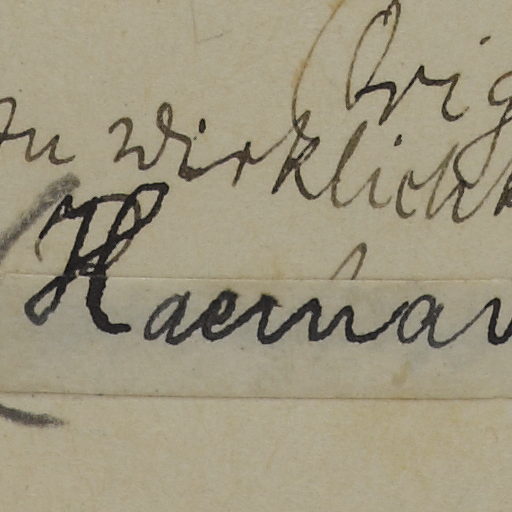 (Orig
zu wirklich
Haemav